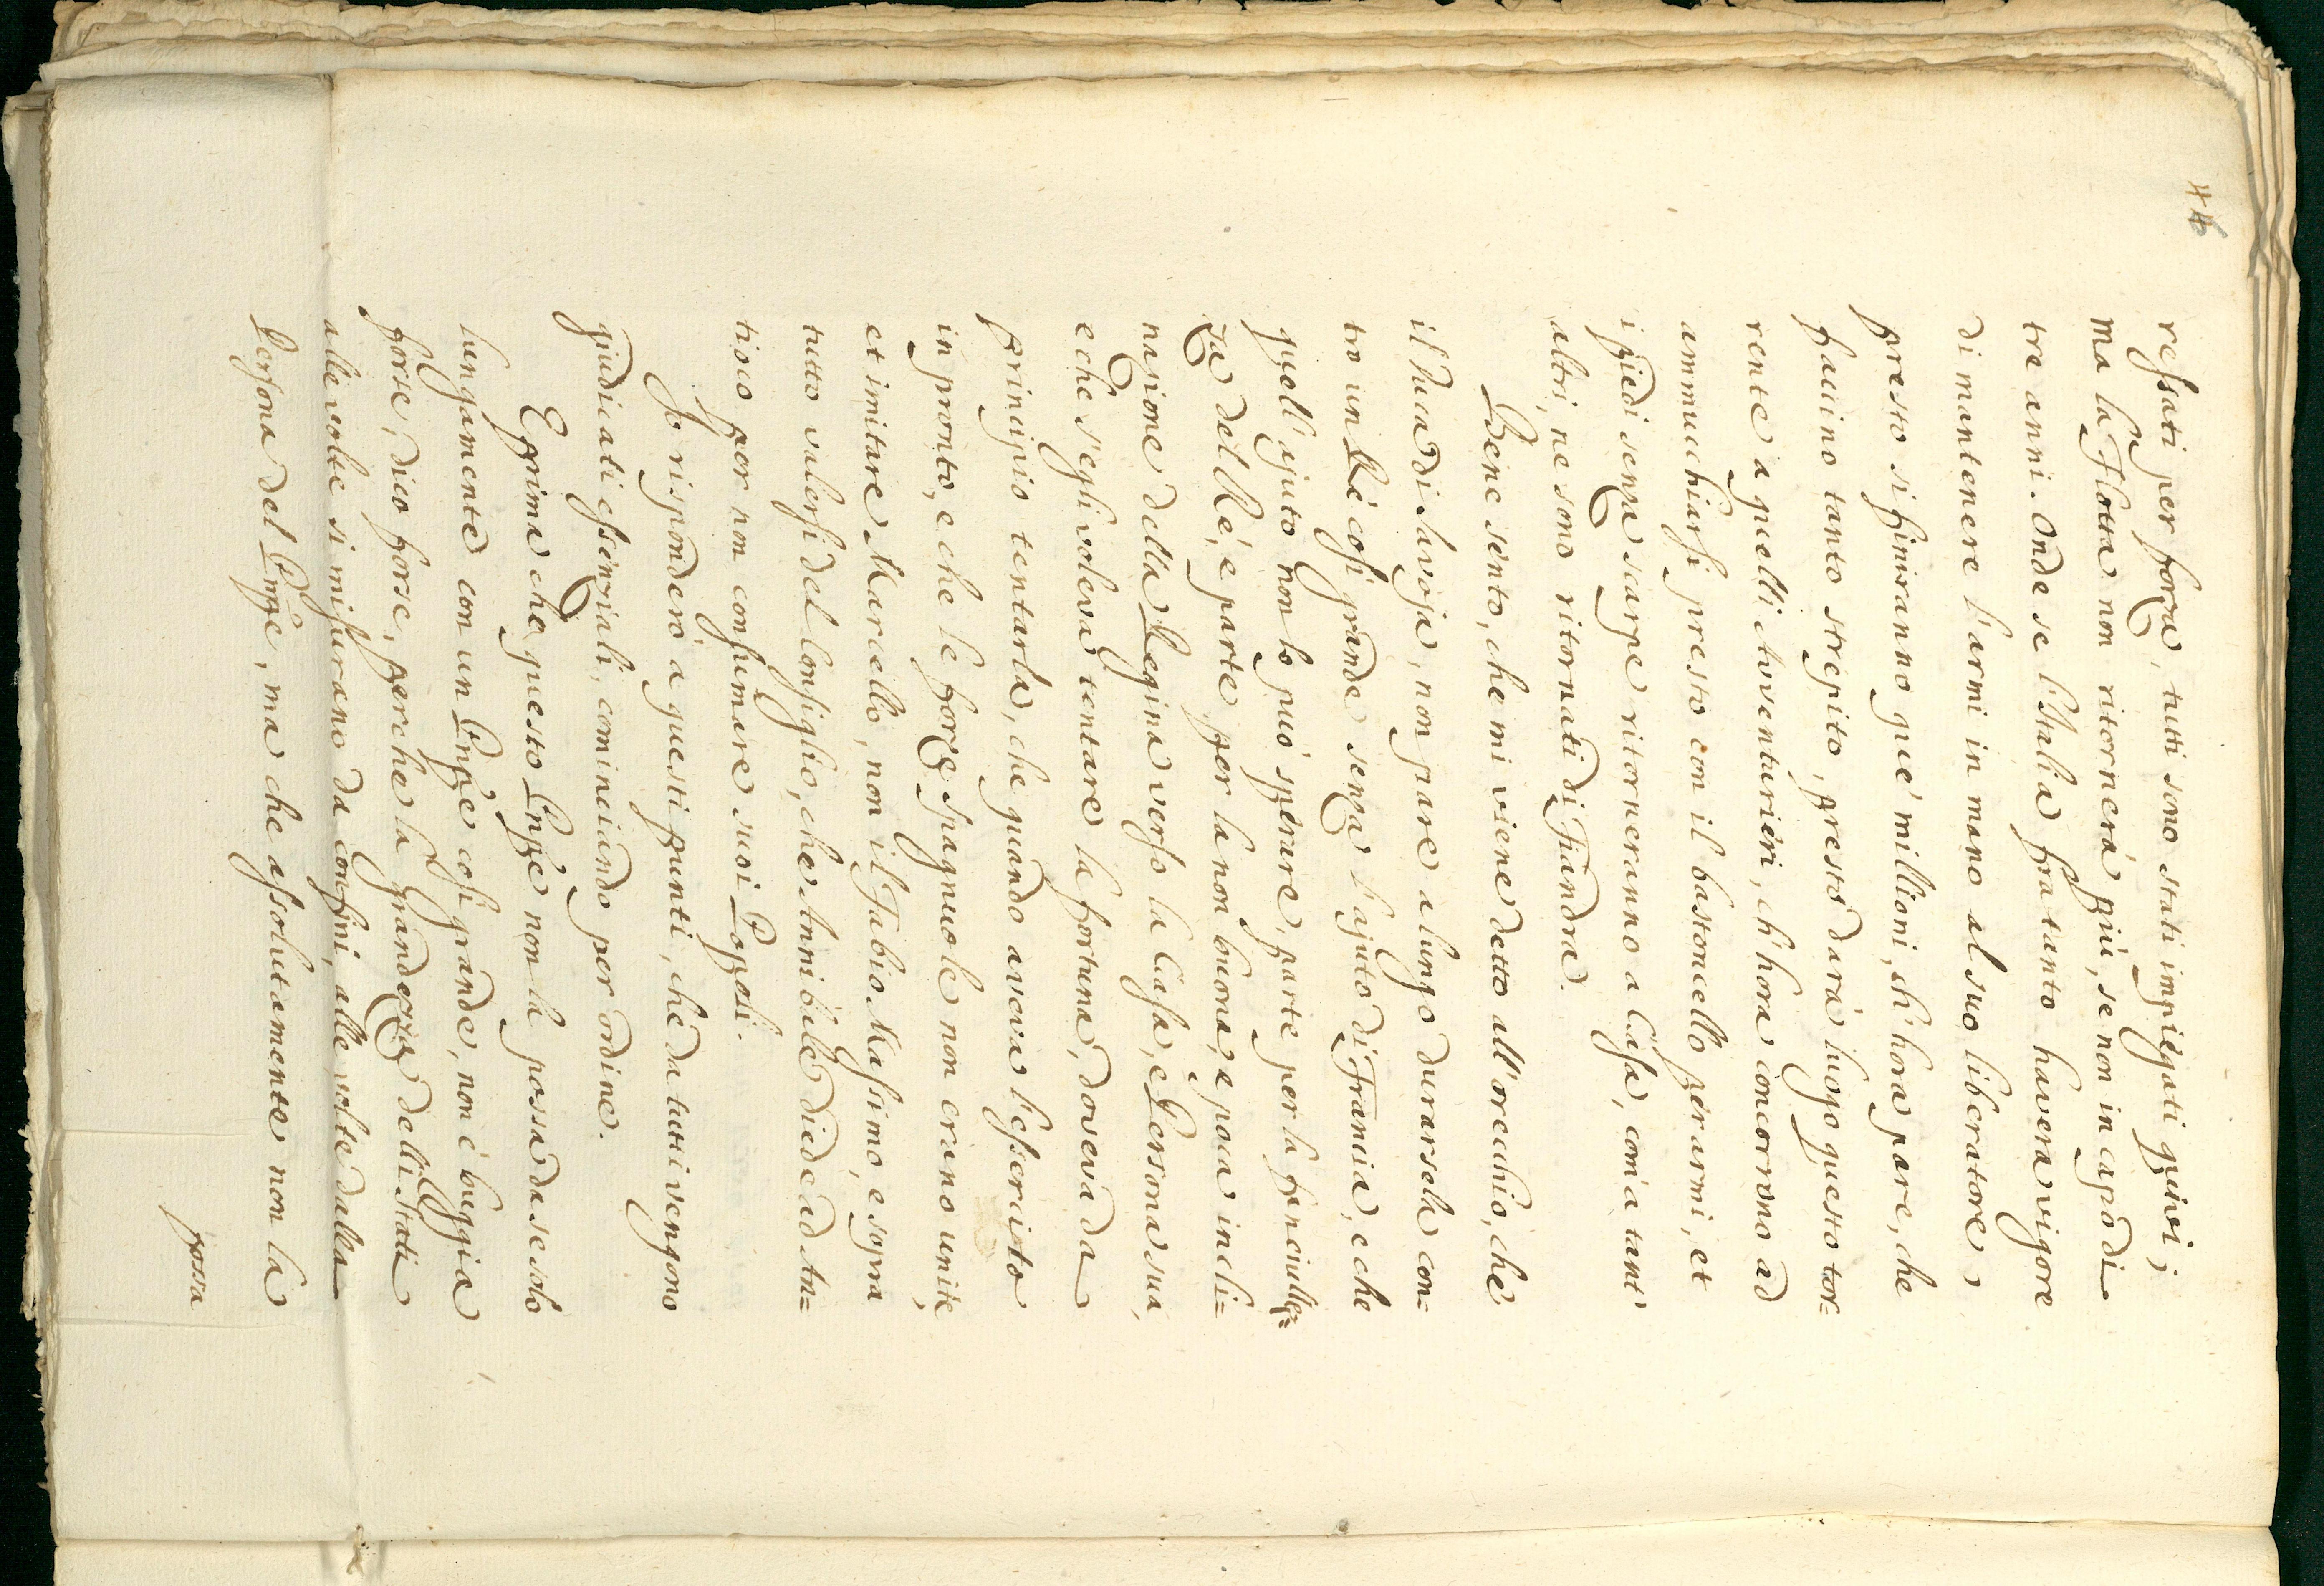 44
ressati per forza, tutti sono stati impiegati quivi;
ma la Flotta non ritornerà più, se non in capo di
tre anni. Onde se l'Italia fra tanto haverà vigore
di mantenere l'armi in mano al suo liberatore,
presto si finiranno que' millioni, ch'hora pare, che
faccino tanto strepito, presto darà luogo questo tor=
rente a quelli Avventurieri, ch'hora concorrono ad
ammucchiarsi presto con il bastoncello per armi, et
i piedi senza scarpe ritorneranno a Casa, com'a tant'
altri, ne sono ritornati di Fiandra.
Bene sento, che mi viene detto all'orecchio, che
il Duca di Savoja, non pare a lungo durarsela con=
tro un Rè così grande senza l'ajuto di Francia, e che
quell'ajuto non lo può sperare, parte per la fanciullez=
za del Rè, e parte per la non buona, e poca incli=
nazione della Regina verso la Casa, e Persona sua,
e che s'egli voleva tentare la fortuna, doveva da
principio tentarla, che quando aveva l'essercito
in pronto, e che le forze Spagnuole non erano unite,
et imitare Marcello, non il Fabio Massimo, e sopra
tutto valersi del Consiglio, che Annibale diede ad An=
tioco per non consumare suoi Popoli.
Io risponderò a questi punti, che da tutti vengono
giudicati essenziali, cominciando per ordine.
E prima che questo Pnpe non la possa da se solo
lungamente con un Pnpe così grande, non è buggia
forse, dico forse, perche la grandezza delli Stati
alle volte si misurano da confini, alle volte dalla
Persona del Pnpe, ma che assolutamente non la
possa